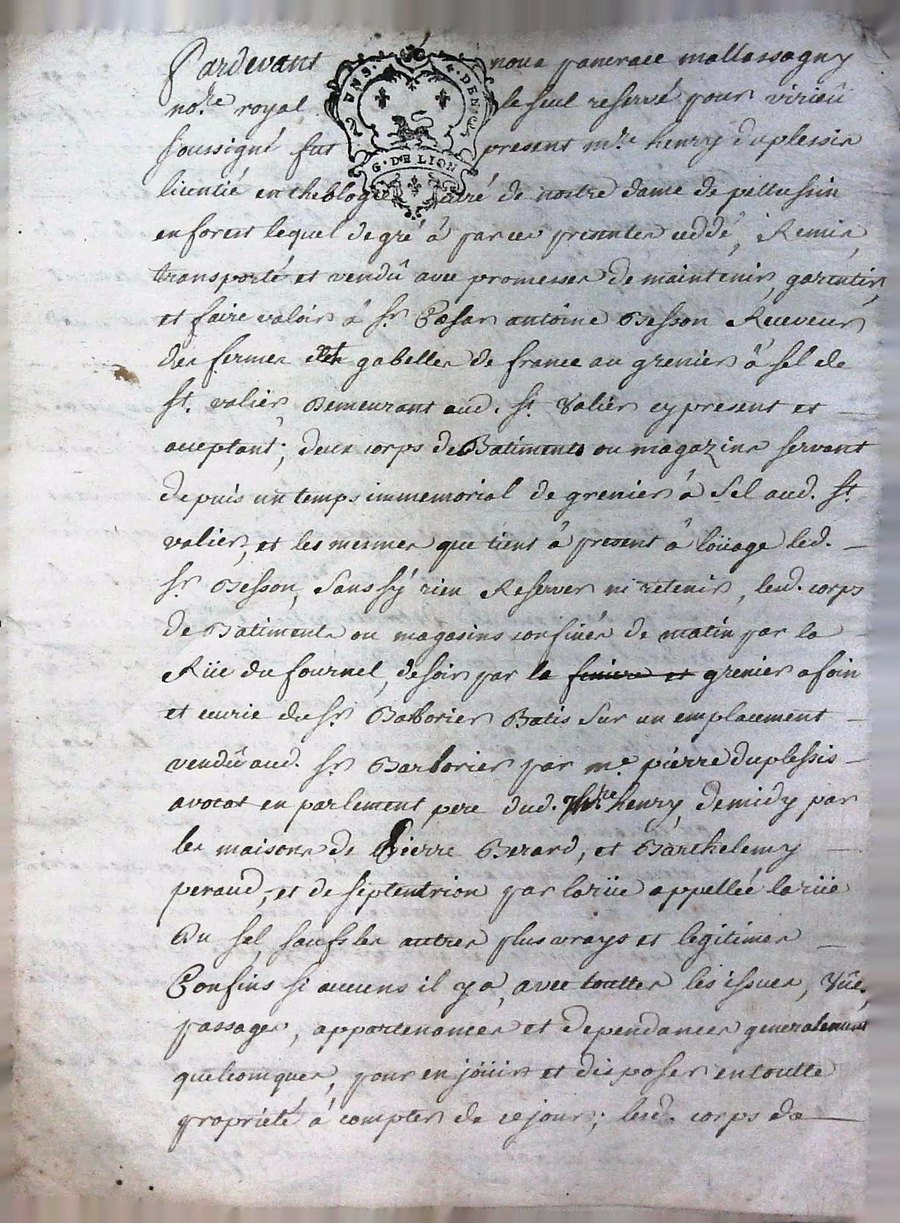 Pardevant nous pancrace mallassagny
no.re royal le seul reservé pour virieû
soussigné fut present m.re henry duplessis
UN S. 4. DEN.
G. DE LION
licentié en theologie curé de nostre dame de pellussin
en forest lequel de gré à par ces presentes ceddé, Remis,
transporté et vendû avec promesses de maintenir, garentir,
et faire valoir à Sr. Cesar antoine Besson Receveur
des fermes et gabelles de france au grenier à sel de
St. valier Demeurant aud. St. Valier cy present et
acceptant; deux corps de Batiments ou magazins servant
depuis un temps immemorial de grenier à Sel aud. St.
valier, et les mesmes que tient à present à loüage led.
Sr. Besson, sans s'y rien Reserver ni retenir, lesd. corps
de Batiments ou magasins confinés de matin par la
Rüe du fournel, de soir par le finiere et grenier a foin
et eurie du Sr. Barborier Batis Sur un emplacement
vendû aud. Sr. Barborier par me. pierre duplessis
avocat en parlement pere dud. mre. henry, de midy par
les maisons de Pierre Berard, et Barthelemy
peraud, et de septentrion par la rüe appellée la rüe
Du sel, saufs les autres plus vrays et legitimes
Confins si aucuns il y a, avec touttes les issues, Vûe,
passages, appartenances et dependances generalement
quelconques, pour en joüir et disposer en toutte
proprieté à compter de ce jour; lesd. corps de